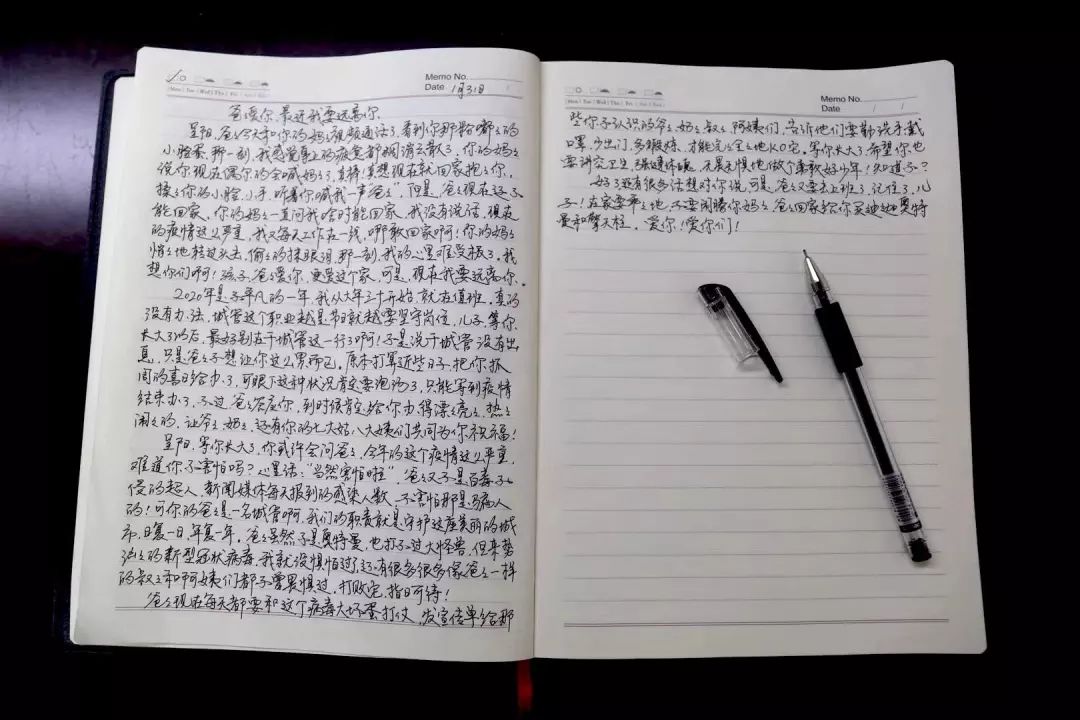 Memo No.
Mon | Tue | Wed | Thu | Fri | Sat | Sun
Date 1月31日
爸爱你,最近我要远离你
呈阳,爸爸今天和你的妈妈视频通话了,看到你那粉嘟嘟的
小脸蛋,那一刻,我感觉身上的疲惫都烟消云散了,你的妈妈
说你现在偶尔的会喊妈妈了,真棒!真想现在就回家抱抱你,
揉揉你的小脸、小手,听着你喊我一声"爸爸",但是,爸爸现在还不
能回家,你的妈妈一直问我啥时能回家,我没有说话,现在
的疫情这么严重,我又每天工作在一线,哪敢回家啊!你的妈妈
悄悄地转过头去,偷偷的抹眼泪,那一刻,我的心里难受极了,我
想你们啊!孩子,爸爸爱你,更爱这个家,可是,现在我要远离你。
2020年是不平凡的一年,我从大年三十开始,就在值班,真的
没有办法,城管这个职业越是节日就越要坚守岗位,儿子,等你
长大了以后,最好别在干城管这一行了啊!不是说干城管没有出
息,只是爸爸不想让你这么累而已,原本打算近些日子,把你抓
周的喜日给办了,可眼下这种状况肯定要泡汤了,只能等到疫情
结束办了,不过,爸爸答应你,到时候肯定给你办得漂漂亮亮、热热
闹闹的,让爷爷、奶奶,还有你的七大姑八大姨们共同为你祝福!
呈阳,等你长大了,你或许会问爸爸,今年的这个疫情这么严重,
难道你不害怕吗?心里话:"当然害怕啦",爸爸又不是百毒不
侵的超人,新闻媒体每天报到的感染人数,不害怕那是骗人
的!可你的爸爸是一名城管啊,我们的职责就是守护这座美丽的城
市,日复一日、年复一年,爸爸虽然不是奥特曼,也打不过大怪兽,但来势
汹汹的新型冠状病毒,我就没惧怕过,还有很多很多像爸爸一样
的叔叔和阿姨们都不曾畏惧过,打败它,指日可待!
爸爸现在每天都要和这个病毒大坏蛋打仗,发宣传单给那
Memo No.
Mon | Tue | Wed | Thu | Fri | Sat | Sun
Date / /
些你不认识的爷爷、奶奶、叔叔、阿姨们,告诉他们要勤洗手、戴口
罩,少出门,多锻炼,才能完完全全地KO它。等你长大了,希望你也
要讲究卫生,强健体魄,无畏无惧地做个勇敢好少年!知道不?
好了,还有很多话想对你说,可是,爸爸又要去上班了,记住了,儿
子!在家要乖乖地,不要闹腾你妈妈,爸爸回家给你买迪迦奥特
曼和擎天柱,爱你!爱你们!